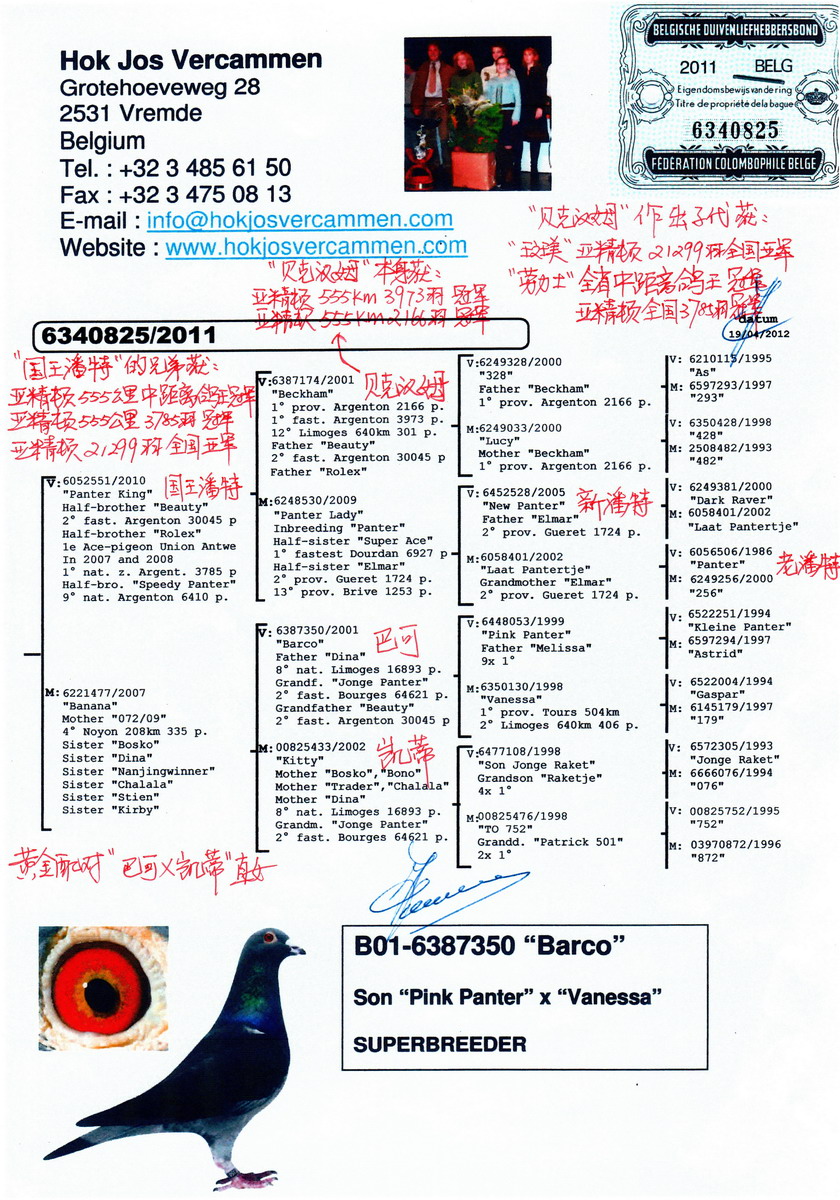 Hok Jos Vercammen
Grotehoeveweg 28
2531 Vremde
Belgium
Tel. : +32 3 485 61 50
Fax : +32 3 475 08 13
E-mail : info@hokjosvercammen.com
Website : www.hokjosvercammen.com
BELGISCHE DUIVENLIEFHEBBERSBOND
2011 BELG
Eigendomsbewijs van de ring
Titre de propriété de la bague
6340825
FÉDÉRATION COLOMBOPHILE BELGE
"贝克汉姆"作出子代获：
亚精顿21299羽全国亚军
"劳力士"全省中距离鸽王冠军
亚精顿全国3785羽冠军
"贝克汉姆"本身获：
亚精顿555km 3973羽冠军
亚精顿555km 2166羽冠军
datum
19/04/2012
6340825/2011
贝克汉姆
"国王潘特"的兄弟获：
亚精顿555公里中距离鸽王冠军
亚精顿555公里3785羽冠军
亚精顿21299羽全国亚军
V: 6052551/2010
"Panter King"
Half-brother "Beauty"
2° fast. Argenton 30045 p
Half-brother "Rolex"
1e Ace-pigeon Union Antwe
In 2007 and 2008
1° nat. z. Argent. 3785 p
Half-bro. "Speedy Panter"
9° nat. Argenton 6410 p.
国王潘特
M: 6221477/2007
"Banana"
Mother "072/09"
4° Noyon 208km 335 p.
Sister "Bosko"
Sister "Dina"
Sister "Nanjingwinner"
Sister "Chalala"
Sister "Stien"
Sister "Kirby"
V: 6387174/2001
"Beckham"
1° prov. Argenton 2166 p.
1° fast. Argenton 3973 p.
12° Limoges 640km 301 p.
Father "Beauty"
2° fast. Argenton 30045 p
Father "Rolex"
M: 6248530/2009
"Panter Lady"
Inbreeding "Panter"
Half-sister "Super Ace"
1° fastest Dourdan 6927 p
Half-sister "Elmar"
2° prov. Gueret 1724 p.
13° prov. Brive 1253 p.
V: 6387350/2001
"Barco"
Father "Dina"
8° nat. Limoges 16893 p.
Grandf. "Jonge Panter"
2° fast. Bourges 64621 p.
Grandfather "Beauty"
2° fast. Argenton 30045 p
巴可
M: 00825433/2002
"Kitty"
Mother "Bosko","Bono"
Mother "Trader","Chalala"
Mother "Dina"
8° nat. Limoges 16893 p.
Grandm. "Jonge Panter"
2° fast. Bourges 64621 p.
凯蒂
V: 6249328/2000
"328"
Father "Beckham"
1° prov. Argenton 2166 p.
M: 6249033/2000
"Lucy"
Mother "Beckham"
1° prov. Argenton 2166 p.
V: 6452528/2005
"New Panter"
Father "Elmar"
2° prov. Gueret 1724 p.
新潘特
M: 6058401/2002
"Laat Pantertje"
Grandmother "Elmar"
2° prov. Gueret 1724 p.
V: 6448053/1999
"Pink Panter"
Father "Melissa"
9x 1°
M: 6350130/1998
"Vanessa"
1° prov. Tours 504km
2° Limoges 640km 406 p.
V: 6477108/1998
"Son Jonge Raket"
Grandson "Raketje"
4x 1°
M: 00825476/1998
"TO 752"
Grandd. "Patrick 501"
2x 1°
V: 6210115/1995
"As"
M: 6597293/1997
"293"
V: 6350428/1998
"428"
M: 2508482/1993
"482"
V: 6249381/2000
"Dark Raver"
M: 6058401/2002
"Laat Pantertje"
V: 6056506/1986
"Panter"
M: 6249256/2000
"256"
老潘特
V: 6522251/1994
"Kleine Panter"
M: 6597294/1997
"Astrid"
V: 6522004/1994
"Gaspar"
M: 6145179/1997
"179"
V: 6572305/1993
"Jonge Raket"
M: 6666076/1994
"076"
V: 00825752/1995
"752"
M: 03970872/1996
"872"
黄金配对"巴可×凯蒂"直女
B01-6387350 “Barco”
Son “Pink Panter” x “Vanessa”
SUPERBREEDER